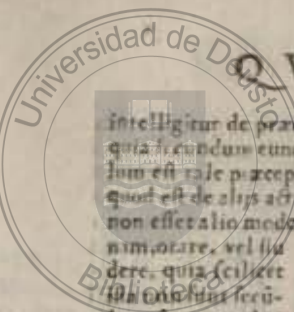 Universidad de Deusto
Q V
intelligitur de præ
quia secundum eun
lum est tale præcep
quod est de alijs act
non esset alio modo
nim, orare, vel stu
dere, quia scilicet
ista non sunt secū-
Biblioteca